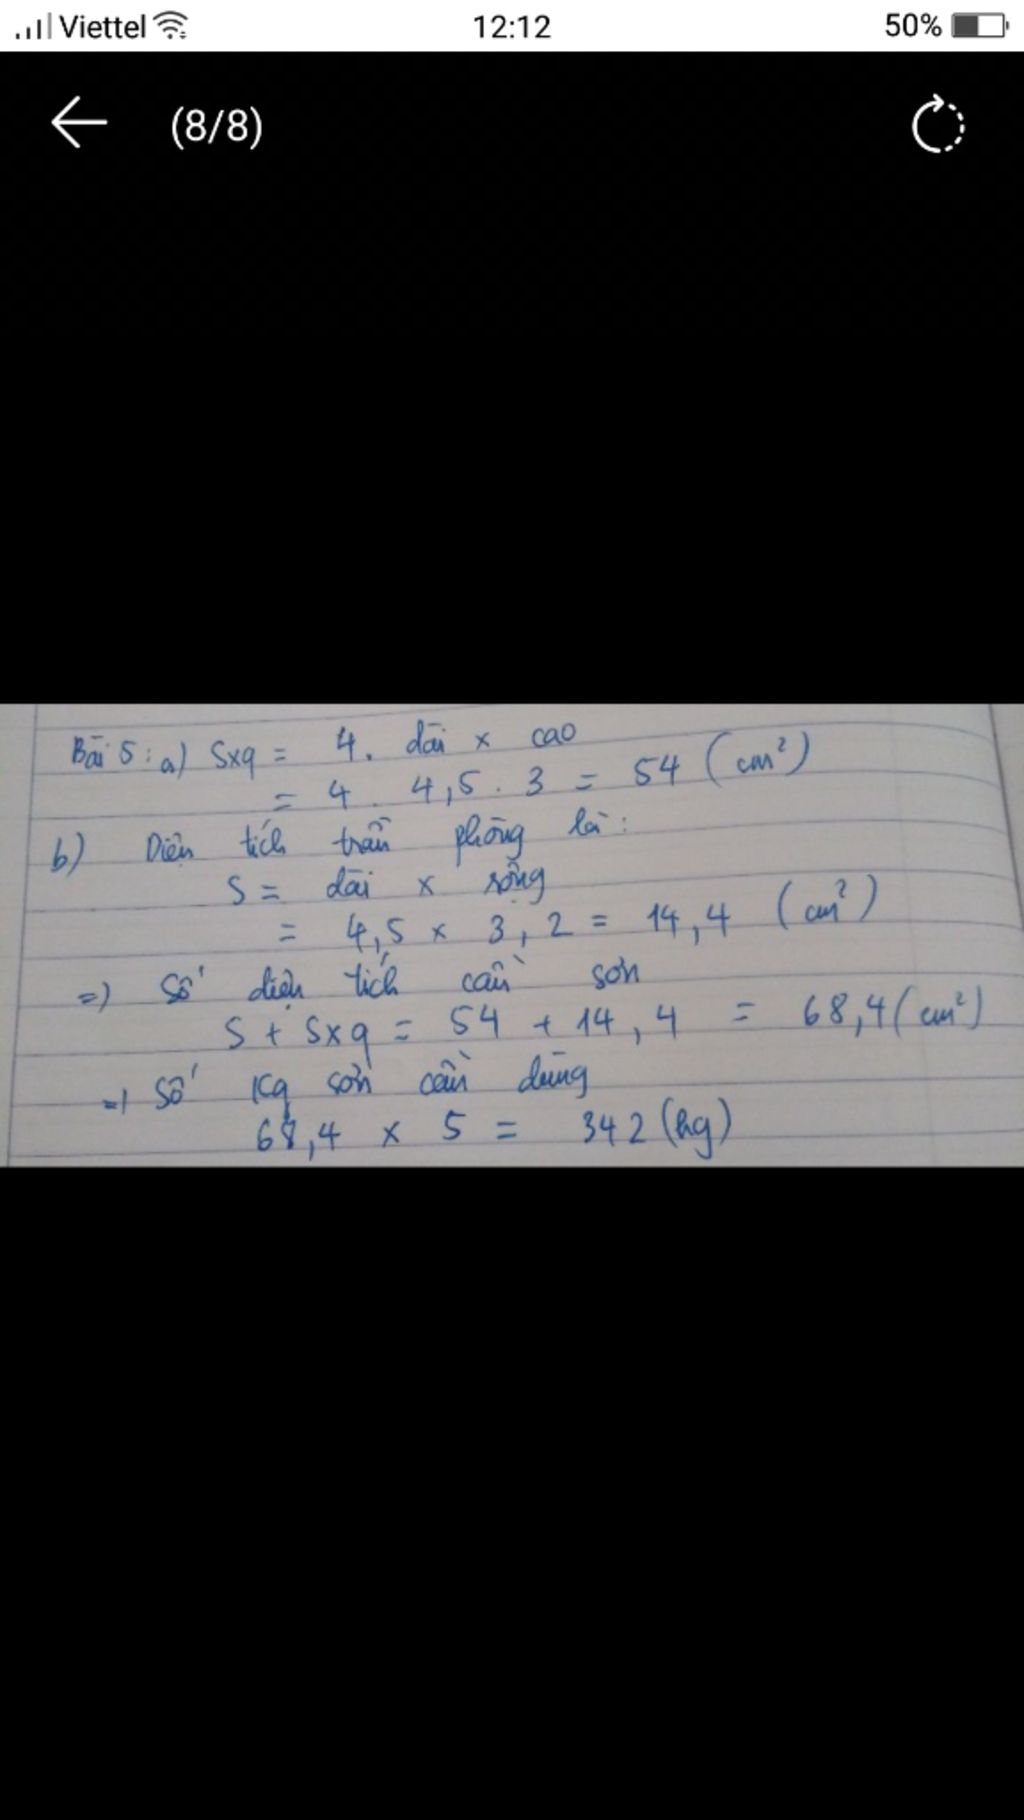 Viettel 12:12 50%
(8/8)
Bài 5: a) Sxq = 4. dài x cao
= 4. 4,5. 3 = 54 (cm²)
b) Diện tích trần phòng là:
S = dài x rộng
= 4,5 x 3,2 = 14,4 (cm²)
=) Số diện tích cần sơn
S + Sxq = 54 + 14,4 = 68,4 (cm²)
=) Số Kg sơn cần dùng
68,4 x 5 = 342 (kg)